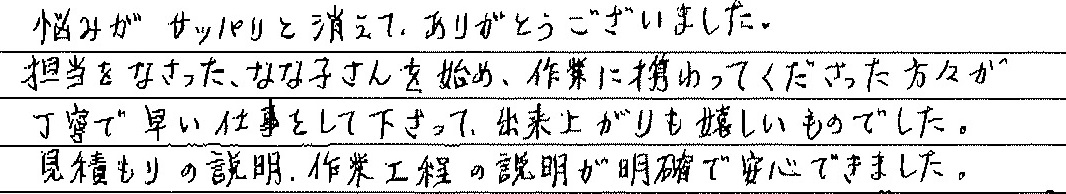 悩みが サッパリと消えて、ありがとうございました。
担当をなさった、なな子さんを始め、作業に携わってくださった方々が
丁寧で早い仕事をして下さって、出来上がりも嬉しいものでした。
見積もりの説明、作業工程の説明が明確で安心できました。